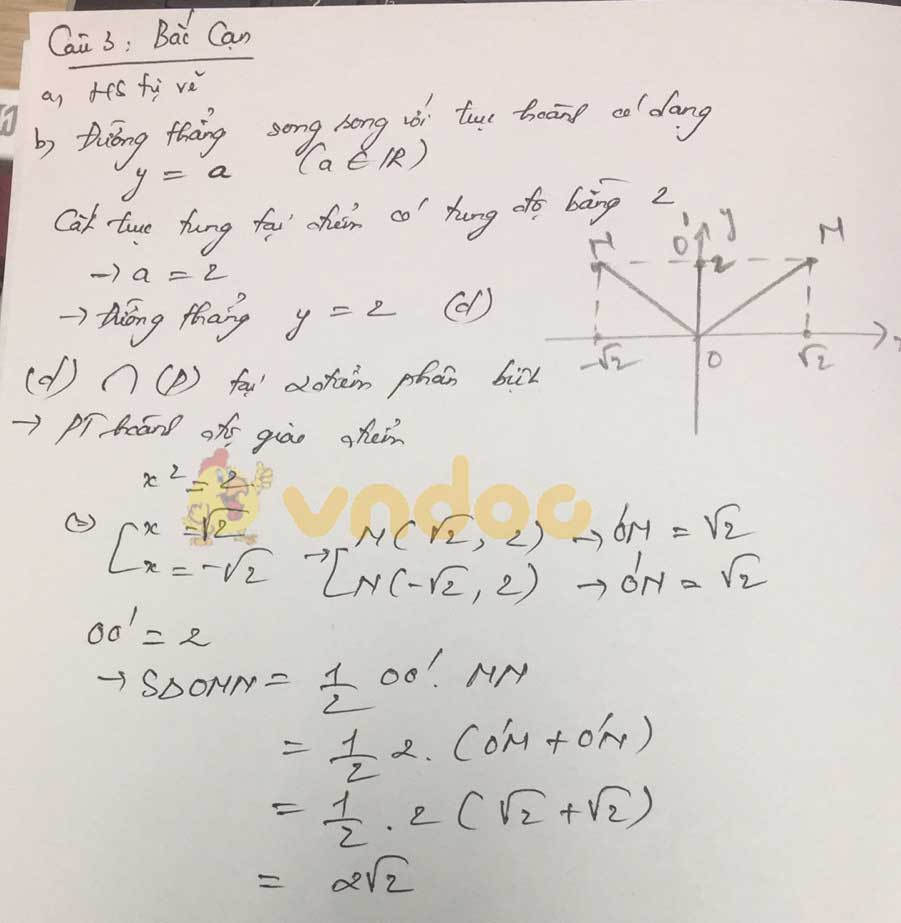 Câu 3: Bắc Cạn
a, HS tự vẽ
b, Đường thẳng song song với trục hoành có dạng
y = a (a ∈ R)
Cắt trục tung tại điểm có tung độ bằng 2
→ a = 2
→ Đường thẳng y = 2 (d)
(d) ∩ (P) tại 2 điểm phân biệt
→ PT hoành độ giao điểm
x² = 2
⇔ [ x = √2
x = -√2
→ [ M(√2, 2) → O'M = √2
N(-√2, 2) → O'N = √2
OO' = 2
→ SΔOMN = 1/2 OO'. MN
= 1/2 2. (O'M + O'N)
= 1/2 . 2 (√2 + √2)
= 2√2
N O' y M
2
-√2 O √2 x
vndoc